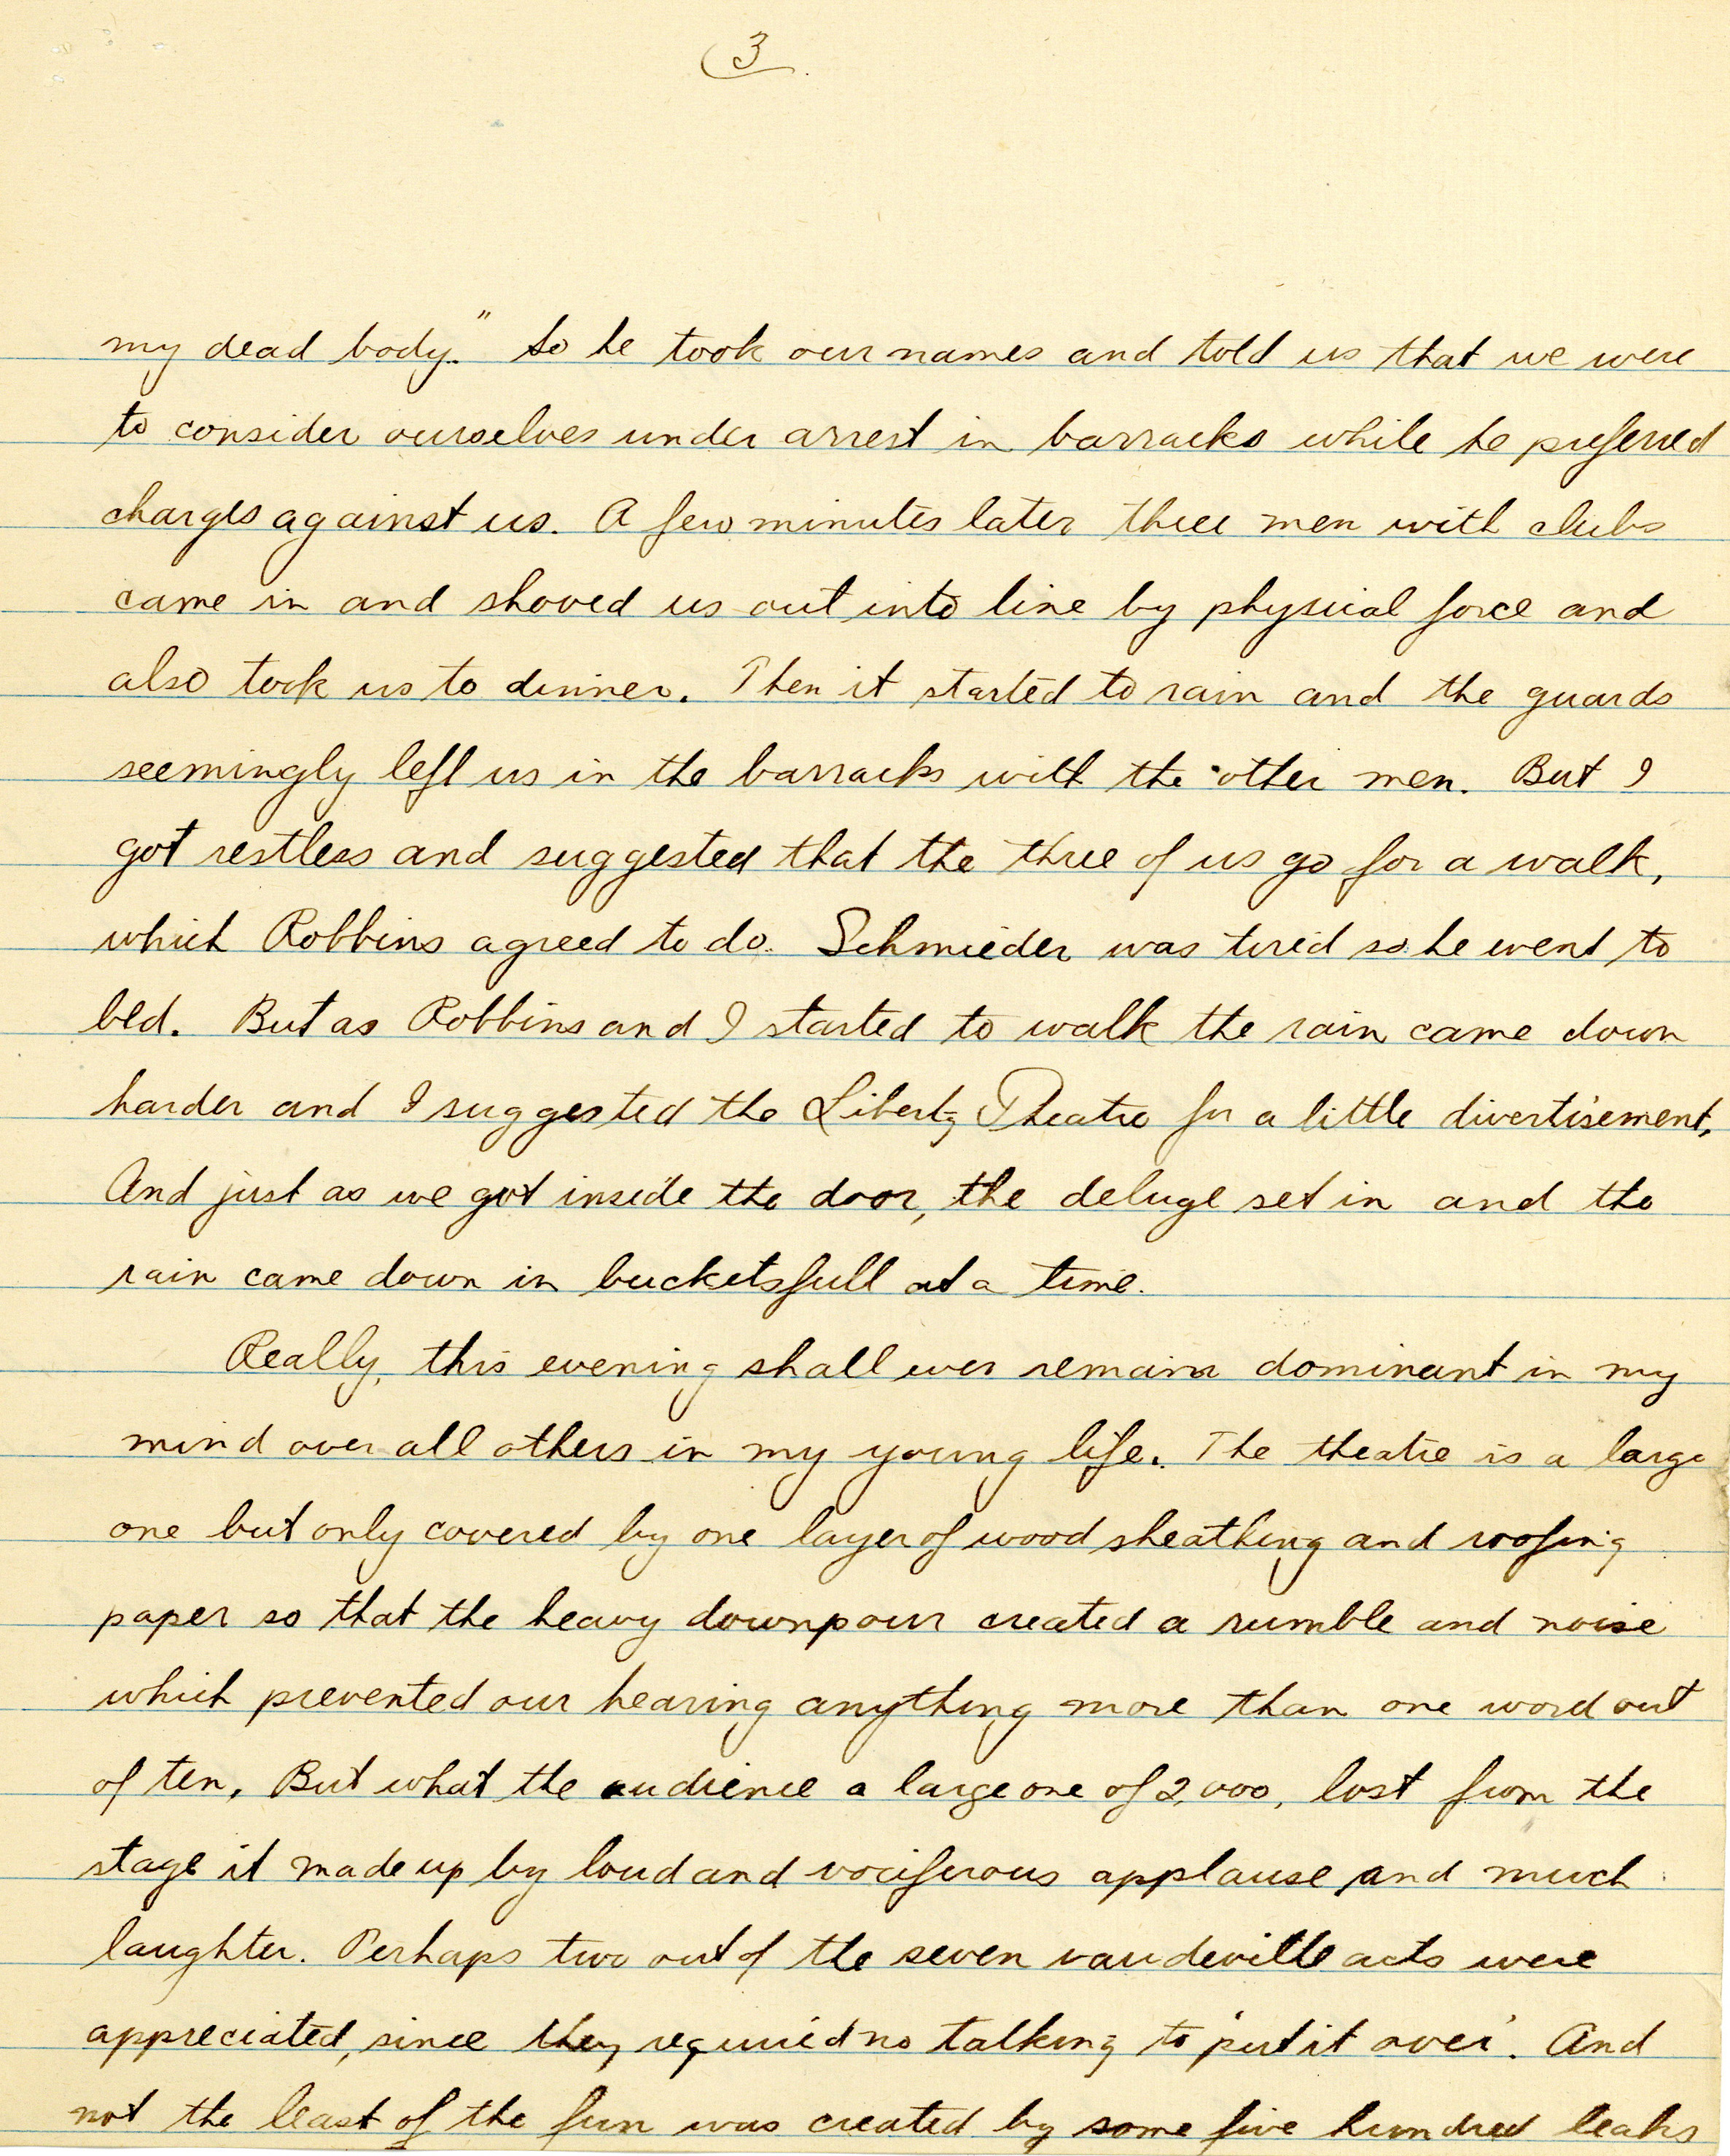 3
my dead body." So he took our names and told us that we were
to consider ourselves under arrest in barracks while he preferred
charges against us. A few minutes later three men with clubs
came in and shoved us out into line by physical force and
also took us to dinner. Then it started to rain and the guards
seemingly left us in the barracks with the other men. But I
got restless and suggested that the three of us go for a walk,
which Robbins agreed to do. Schmieder was tired so he went to
bed. But as Robbins and I started to walk the rain came down
harder and I suggested the Liberty Theatre for a little divertisement.
And just as we got inside the door, the deluge set in and the
rain came down in bucketsfull at a time.
Really, this evening shall ever remain dominant in my
mind over all others in my young life. The theatre is a large
one but only covered by one layer of wood sheathing and roofing
paper so that the heavy downpour created a rumble and noise
which prevented our hearing anything more than one word out
of ten. But what the audience a large one of 2,000, lost from the
stage it made up by loud and vociferous applause and much
laughter. Perhaps two out of the seven vaudeville acts were
appreciated, since they required no talking to 'put it over'. And
not the least of the fun was created by some five hundred leaks